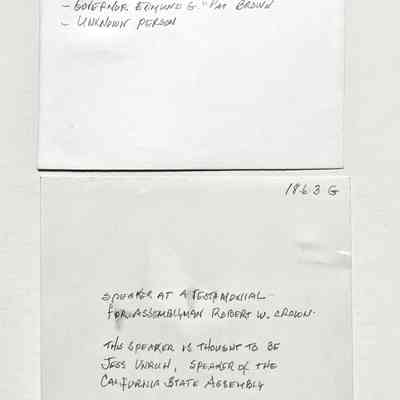 - GOVERNOR EDMUND G. "PAT BROWN
- UNKNOWN PERSON
1863 G
SPEAKER AT A TESTAMONIAL
FOR ASSEMBLYMAN ROBERT W. CROWN.
THIS SPEAKER IS THOUGHT TO BE
JESS UNRUH, SPEAKER OF THE
CALIFORNIA STATE ASSEMBLY